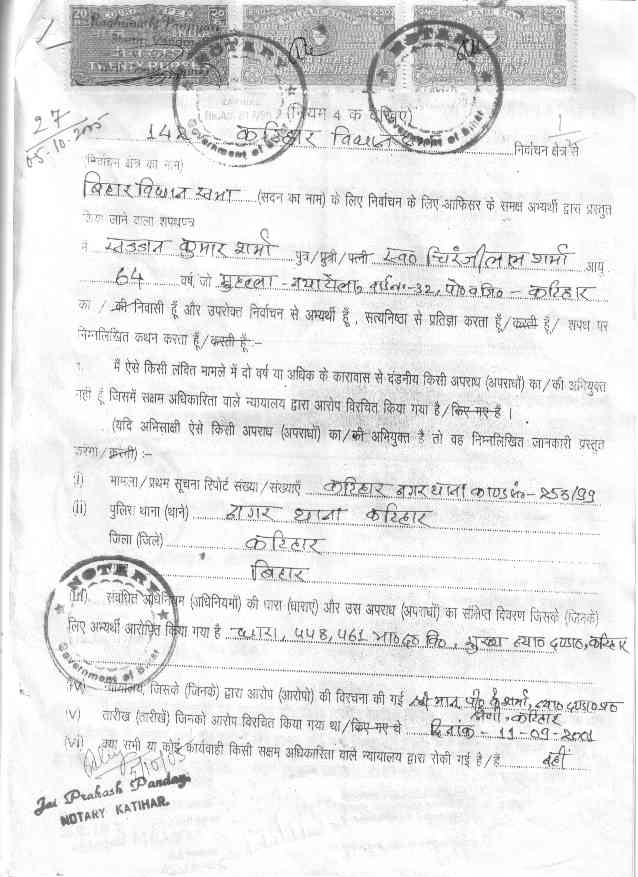 NOTARY
Government of Bihar
NOTARY
Government of Bihar
27
05-10-2005
1
(नियम 4 क देखिए)
कटिहार विधान
निर्वाचन क्षेत्र से
(निर्वाचन क्षेत्र का नाम)
बिहार विधान सभा (सदन का नाम) के लिए निर्वाचन के लिए आफिसर के समक्ष अभ्यर्थी द्वारा प्रस्तुत
किया जाने वाला शपथपत्र
कुमार शर्मा पुत्र/पुत्री/पत्नी स्व० चिरंजीलाल शर्मा आयु
64 वर्ष, जो मुहल्ला - नयाटोला, वार्ड नं०-32, पो० व जि० - कटिहार
का / की निवासी हूँ और उपरोक्त निर्वाचन से अभ्यर्थी हूँ , सत्यनिष्ठा से प्रतिज्ञा करता हूँ/करती हूँ/ शपथ पर
निम्नलिखित कथन करता हूँ/करती हूँ:-
मैं ऐसे किसी लंबित मामले में दो वर्ष या अधिक के कारावास से दंडनीय किसी अपराध (अपराधों) का/की अभियुक्त
नहीं हूँ जिसमें सक्षम अधिकारिता वाले न्यायालय द्वारा आरोप विरचित किया गया है/किए गए है ।
(यदि अभिसाक्षी ऐसे किसी अपराध (अपराधों) का/की अभियुक्त है तो वह निम्नलिखित जानकारी प्रस्तुत
करेगा/करती) :-
(i) मामला/प्रथम सूचना रिपोर्ट संख्या/संख्याएँ कटिहार नगर थाना काण्ड सं०-
(ii) पुलिस थाना (थाने) नगर थाना कटिहार
जिला (जिले) कटिहार
बिहार
NOTARY
Government of Bihar
(iii) संबंधित अधिनियम (अधिनियमों) की धारा (धाराएं) और उस अपराध (अपराधों) का संक्षिप्त विवरण जिसके (जिनके)
लिए अभ्यर्थी आरोपित किया गया है धारा, ४४8, ५६1 भा० द० वि०, मुख्य न्या० दण्डा०, कटिहार
(iv) न्यायालय जिसके (जिनके) द्वारा आरोप (आरोपों) की विरचना की गई
श्रेणी, कटिहार
(v) तारीख (तारीखें) जिनको आरोप विरचित किया गया था/किए गए थे दिनांक - 11-09-2001
(vi) क्या सभी या कोई कार्यवाही किसी सक्षम अधिकारिता वाले न्यायालय द्वारा रोकी गई है/हैं नहीं
Jai Prakash Panday
NOTARY KATIHAR.